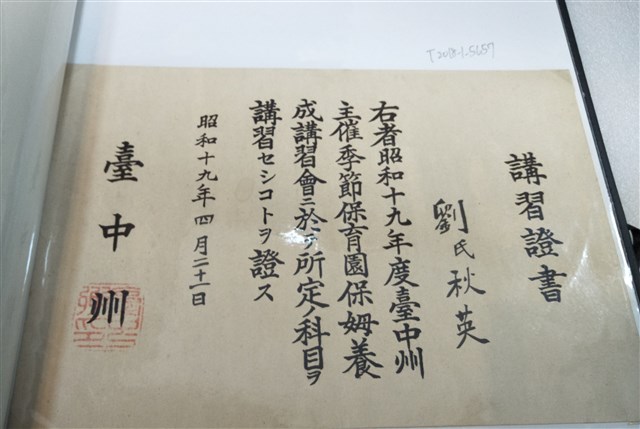 T2018-1-5657
講習證書
劉氏秋英
右者昭和十九年度臺中州
主催季節保育園保姆養
成講習會ニ於テ所定ノ科目ヲ
講習セシコトヲ證ス
昭和十九年四月二十一日
臺中州